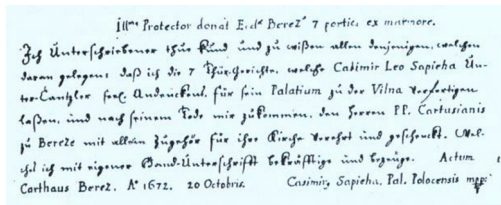 Ill.mus Protector donat Eccl.ae Berez.ae 7 portic. ex marmore.
Ich Unterschriebener thue kund und zu wißen allen denjenigen, welchen
daran gelegen, daß ich die 7 Thür-Gerichte, welche Casimir Leo Sapieha Un-
ter-Cantzler seel. Andenckens, für sein Palatium zu der Vilna verfertigen
laßen, und nach seinem Tode mir zukommen, den Herren P.P. Cartusianis
zu Bereze mit allem Zugehör für ihre Kirche verehrt und geschenckt. Wel-
ches ich mit eigener Hand-Unterschrifft bekräfftige und bezeuge. Actum
Carthaus Berez. A.o 1672. 20 Octobris. Casimir.s Sapieha, Pal. Polocensis mpp